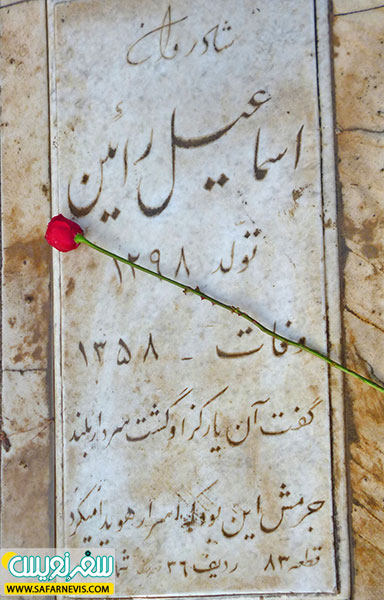 شادروان
اسماعیل رائین
تولد ۱۲۹۸
وفات - ۱۳۵۸
گفت آن یار کز او گشت سردار بلند
جرمش این بود که اسرار هویدا میکرد
قطعه ۸۳ ردیف ۳۶
سفرنویس
WWW.SAFARNEVIS.COM